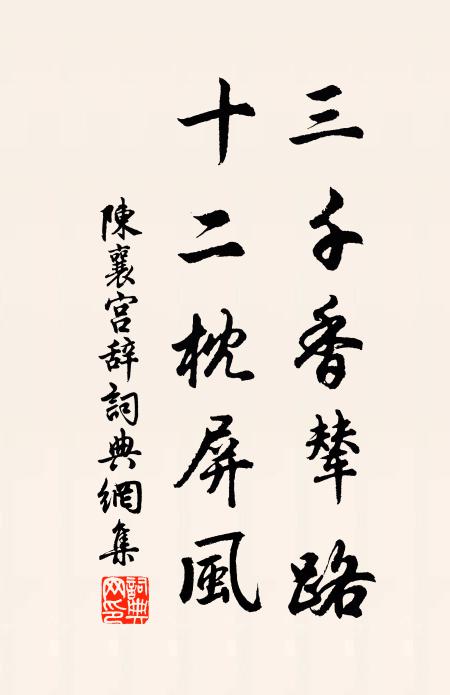 三千香輦路
十二枕屏風
陳襄宫辞詞典網集
詞典网印